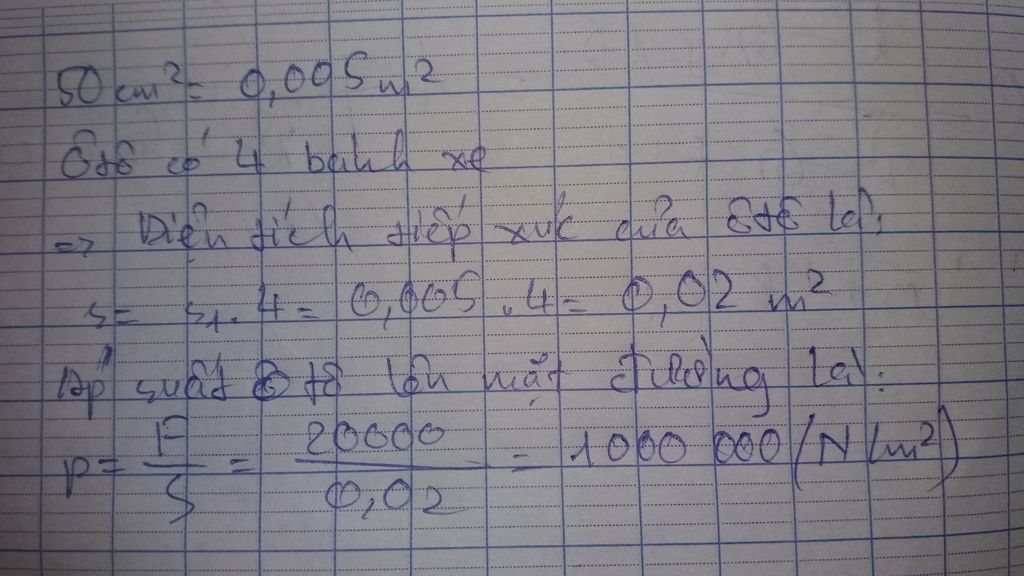 50 cm² = 0,005 m²
Ôtô có 4 bánh xe
=> Diện tích tiếp xúc của ôtô là:
S = S₁. 4 = 0,005 . 4 = 0,02 m²
Áp suất ô tô lên mặt đường là:
p = F/S = 20000/0,02 = 1000 000 (N/m²)